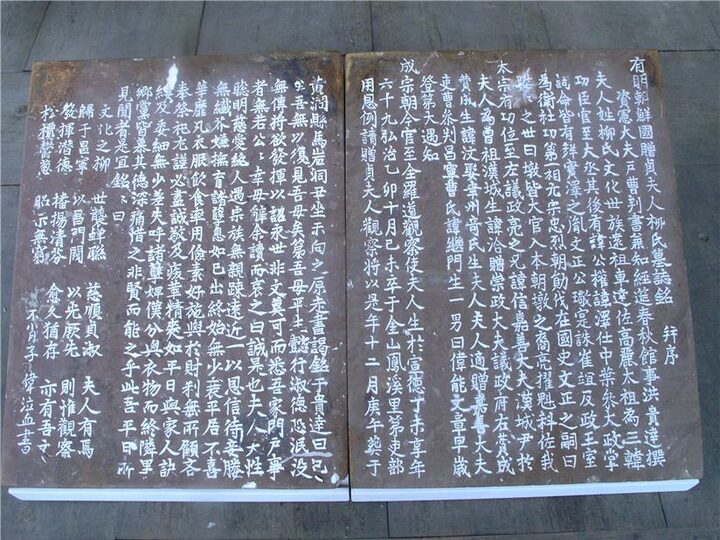 有明朝鮮國贈貞夫人柳氏墓誌銘 幷序
資憲大夫戶曹判書兼知經筵春秋館事洪貴達撰
夫人姓柳氏文化世族遠祖車達佐高麗太祖為三韓
功臣官至大丞其後有諱公權諱澤仕中葉參大政掌
誥命皆有鉾實澤之胤文正公璥寔誅崔竩反政王室
為衛社功第一相元宗忠烈朝勳伐在國史文正之嗣曰
之世曰墩皆大官入本朝墩之裔亮擢魁科佐我
太宗有功位至左議政亮之兄諱信嘉善大夫漢城尹於
夫人為曾祖漢城生諱洽贈崇政大夫議政府左贊成
贊成生諱汶娶喜州音氏生夫人夫人適贈嘉善大夫
吏曹參判昌寧曹氏諱繼門生一男曰偉能文章早歲
登第大遇知
成宗朝令官至全羅道觀察使夫人生於宣德丁未享年
六十九弘治乙卯十月己未卒于金山鳳溪里第吏部
用恩例請贈貞夫人觀察將以是年十二月庚午葬于
黃澗縣馬岩洞丑坐未向之原考書謁銘于貴達曰已
坐吾無以復見吾母矣第吾母平生懿行淑德恐泯沒
無傳將欲發揮以詔永世非文莫可而悉吾家門戶事
者無若公公幸毋辭余讀而哀之曰誠是也夫人天性
聰明慈愛給人遇宗族無親踈遠近一以恩信待妾媵
無纖芥嫌撫育諸孼息如已出終始無少衰平居不喜
華靡凡衣服飮食率用儉素好施與於財利無所顧吝
奉祭祀尤謹必盡誠敬及疾革精爽如平日與家人訣
纏及委細無少差失呼諸孼婢僕分與衣物而終隣里
鄉黨皆慕其德深痛惜之非賢而能之乎此吾平日所
見聞者是宜銘銘曰
文化之柳 世襲蟬聯 慈順貞淑 夫人有焉
歸于昌寧 以昌門閥 以先厥先 則惟觀察
發揮潛德 播揚清芬 俞久猶存 亦有吾文
松檟鬱蔥 昭示無窮
不肖子偉泣血書